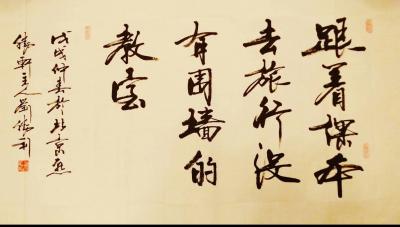 跟着课本
去旅行没
有围墙的
教室
戊戌仲春於北京
轩主人刘德利